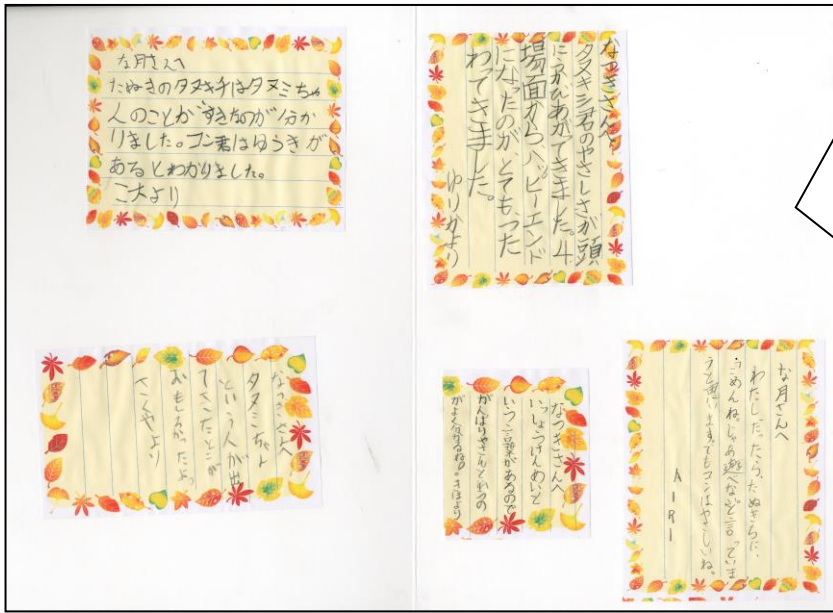 な月さんへ
たぬきのタヌキチはタヌミちゃ
んのことがすきなのが分か
りました。コン君はゆうきが
あるとわかりました。
こ大より
なつきさんへ
タヌキシ君のやさしさが頭
にうかびあがてきました。4
場面からハッピーエンド
になったのがとてもつた
わってきました。
ゆりかより
なつきさんへ
タヌミちゃん
という人が出
てきたとこが
おもしろかったよ。
さくやより
なつきさんへ
いっしょうけんめいと
いう言葉があるので
がんばりやさんと
がよく分かるね。さほより
な月さんへ
わたしだったら、たぬきちに、
ごめんね。じゃあ遊べないと言っていま
うと思います。でもコンはやさしいね。
AIRI